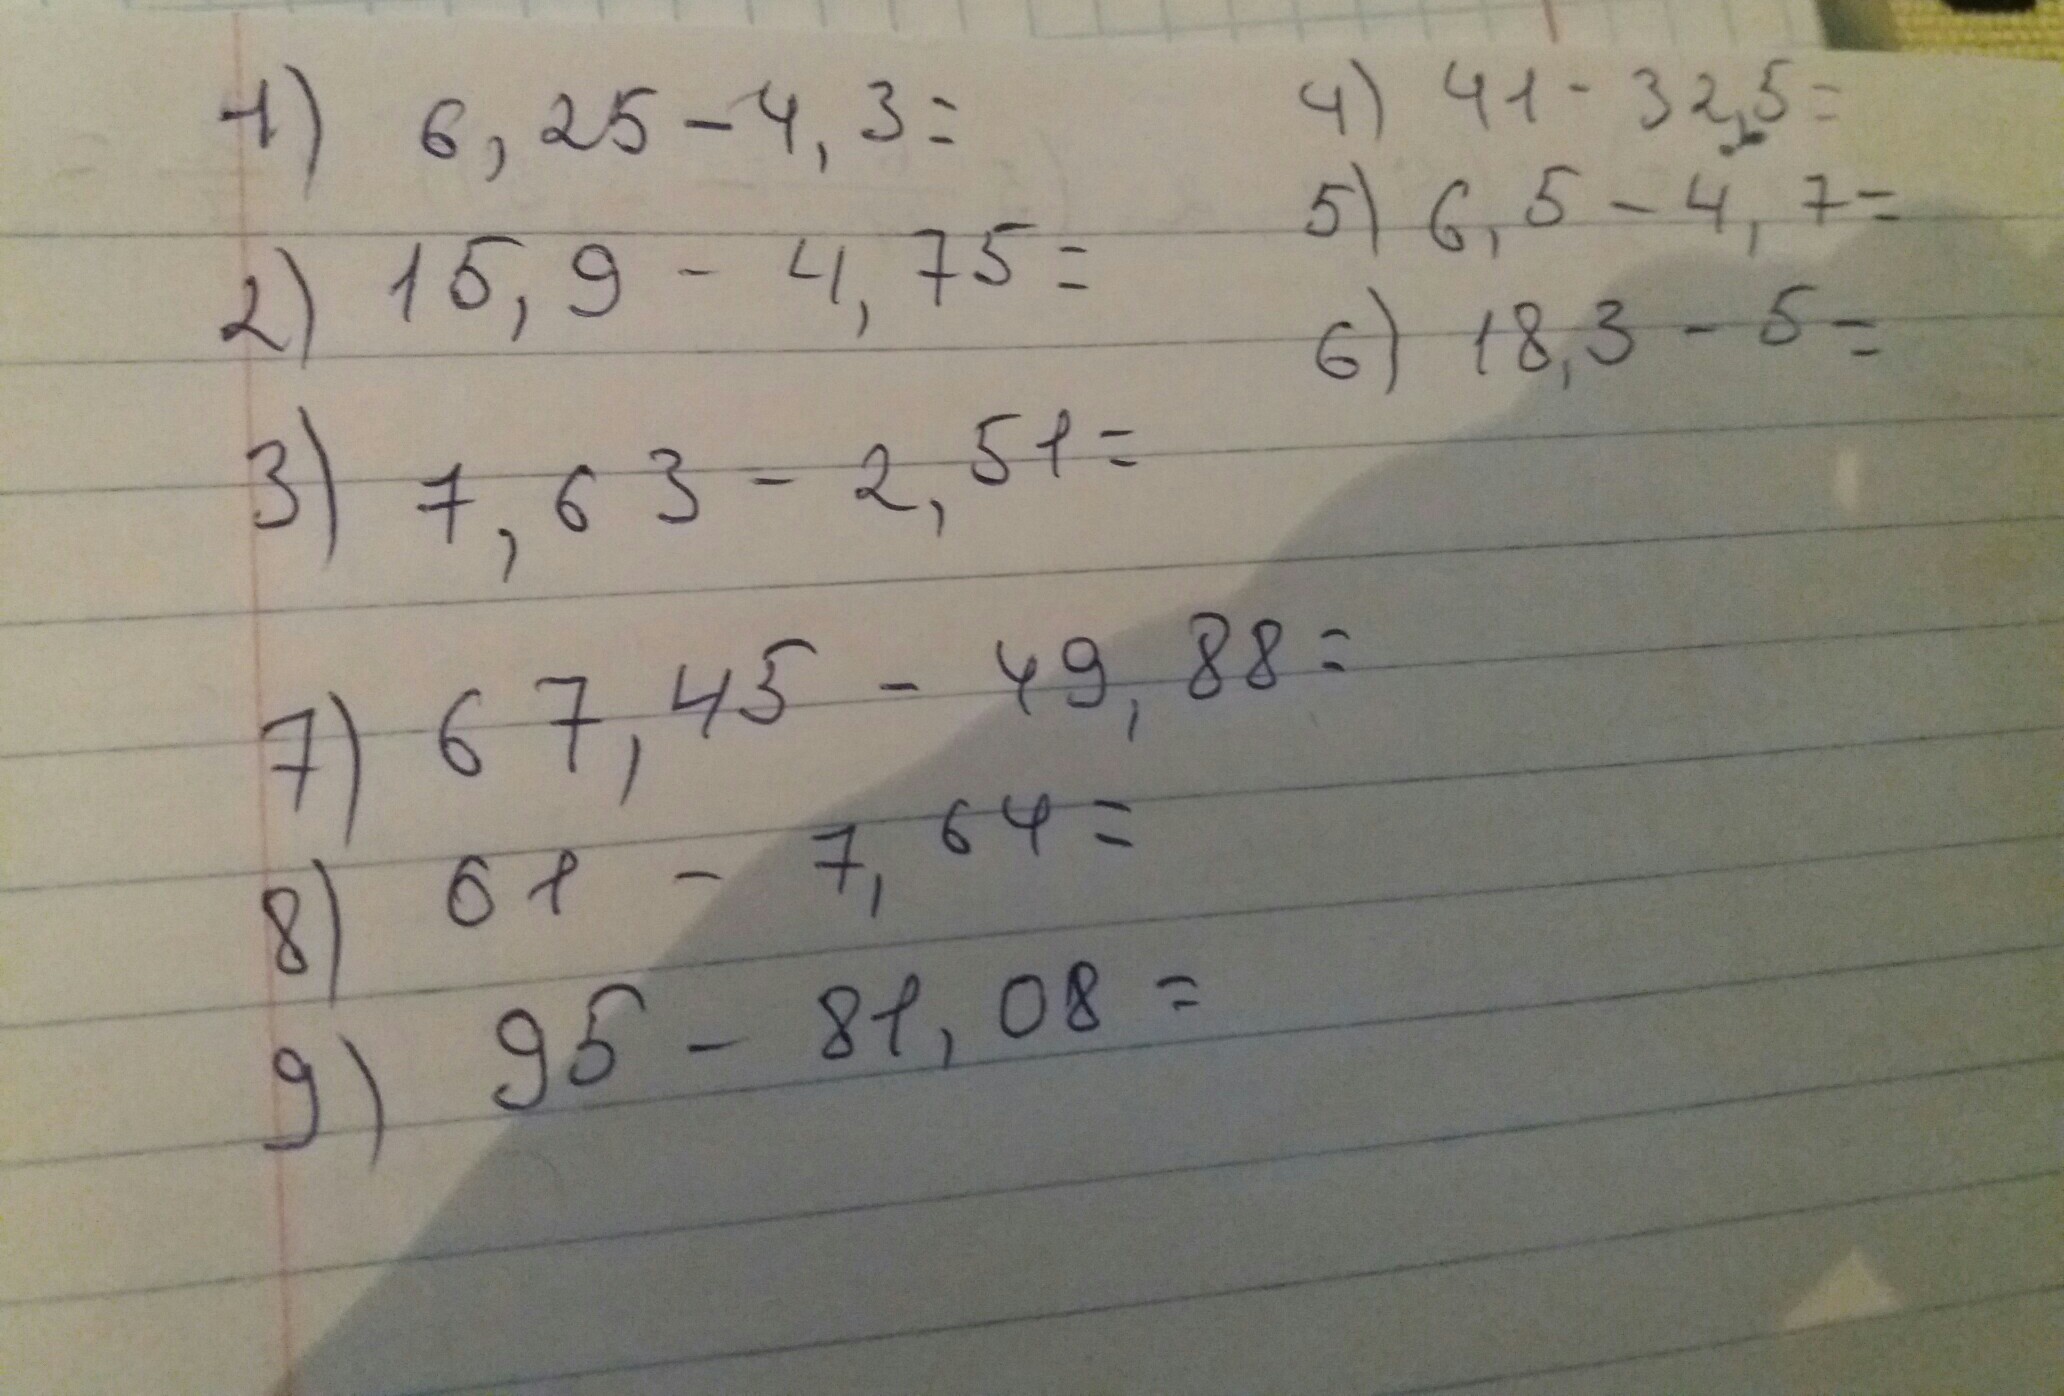 1) 6,25-4,3=
2) 15,9 - 4,75=
3) 7,63 - 2,51=
4) 41- 32,5=
5) 6,5-4,7=
6) 18,3 - 5=
7) 67,45 - 49,88=
8) 61 - 7,64=
9) 95 - 81,08 =